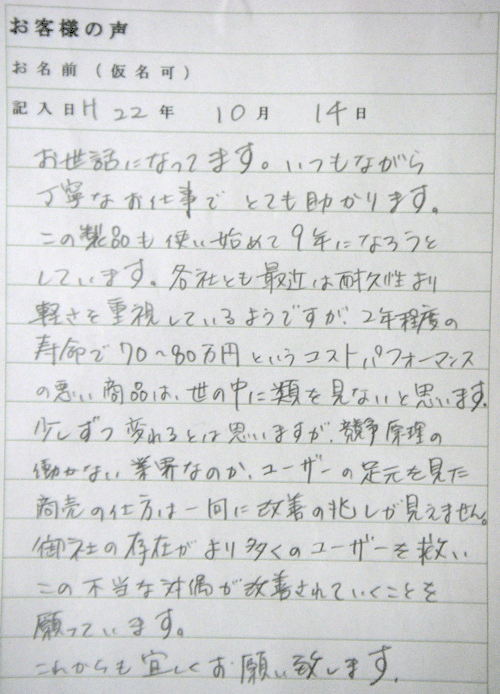 お客様の声
お名前(仮名可)
記入日H 22年 10月 14日
お世話になってます。いつもながら
丁寧なお仕事でとても助かります。
この製品も使い始めて9年になろうと
しています。各社とも最近は耐久性より
軽さを重視しているようですが、2年程度の
寿命で70〜80万円というコストパフォーマンス
の悪い商品は、世の中に類を見ないと思います。
少しずつ変れるとは思いますが、競争原理の
働かない業界なのか、ユーザーの足元を見た
商売の仕方は一向に改善の兆しが見えません。
御社の存在がより多くのユーザーを救い
この不当な対偶が改善されていくことを
願っています。
これからも宜しくお願い致します。